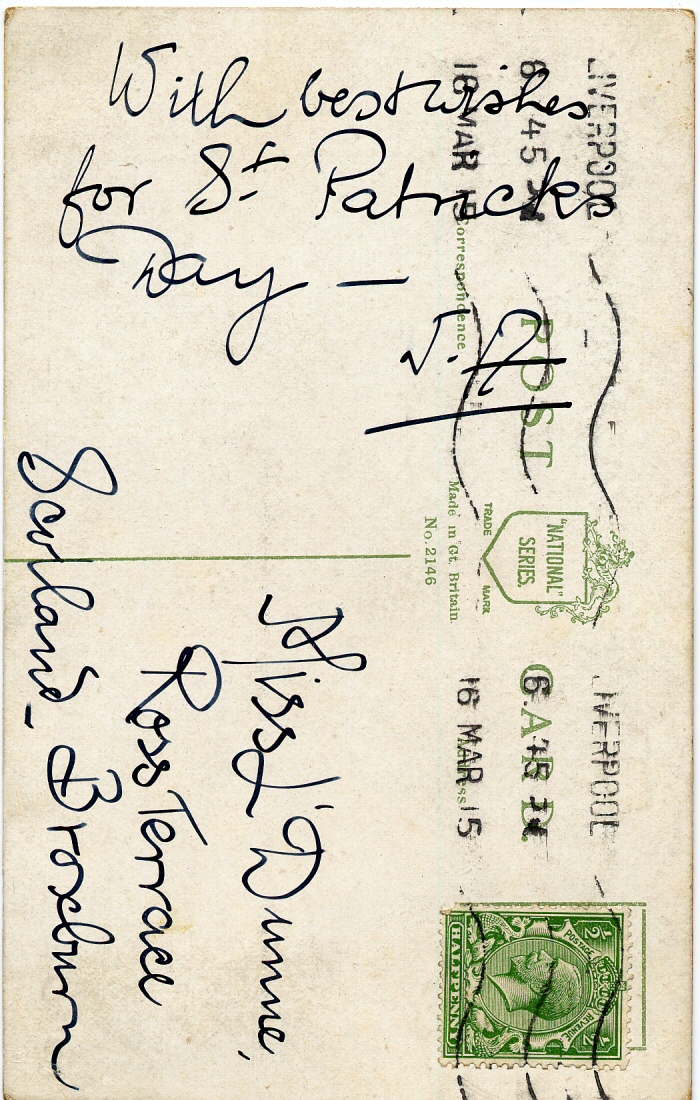 With best wishes
for St Patricks
Day —
J. D
POST CARD.
Correspondence
"NATIONAL"
SERIES.
TRADE MARK
Made in Gt. Britain.
No. 2146
LIVERPOOL
6 45
16 MAR 15
LIVERPOOL
6 45
16 MAR 15
POSTAGE REVENUE
1/2 1/2
HALFPENNY
Miss J Dunne,
Ross Terrace
Broxburn
Scotland_